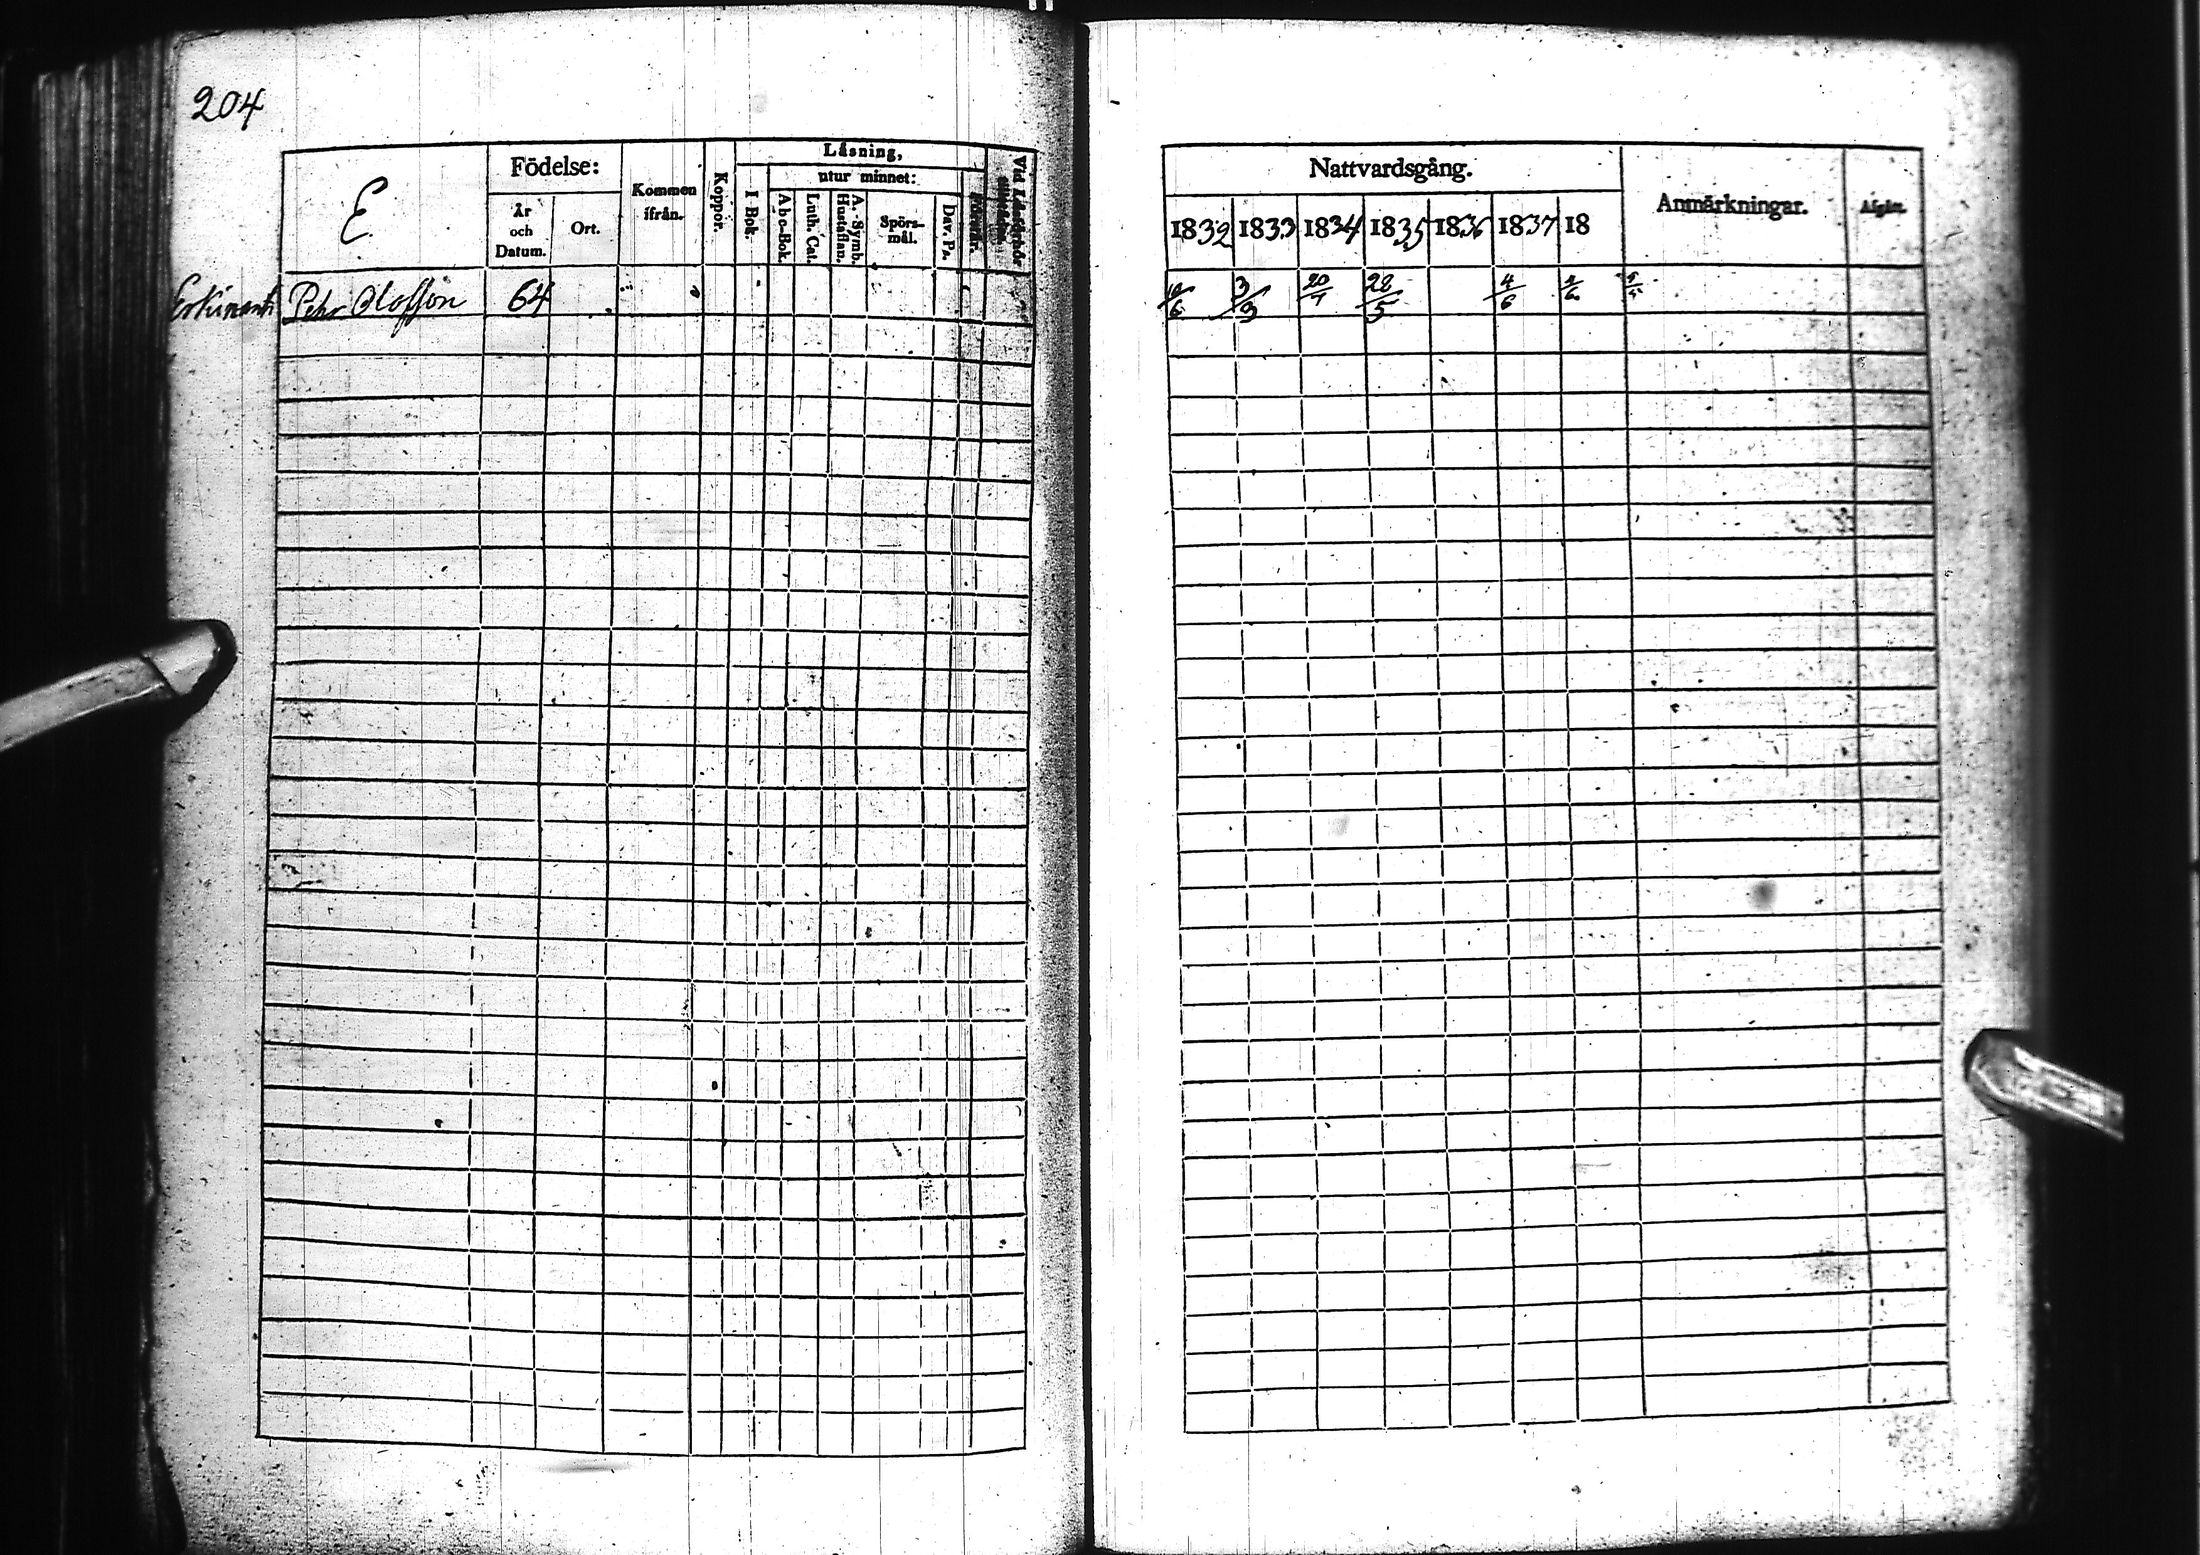 204
E
Födelse:
År och Datum.
Ort.
Kommen ifrån.
Koppor.
Läsning,
I Bok.
utur minnet:
Abo-Bok.
Luth. Cat.
A.-Symb. Hustaflan.
Spörs-mål.
Dav. Ps.
Vid Läsförhör
Pehr Olofsson 64
Nattvardsgång.
1832 1833 1834 1835 1836 1837 18
Anmärkningar.
Afgått.
3/3 28/5 4/6